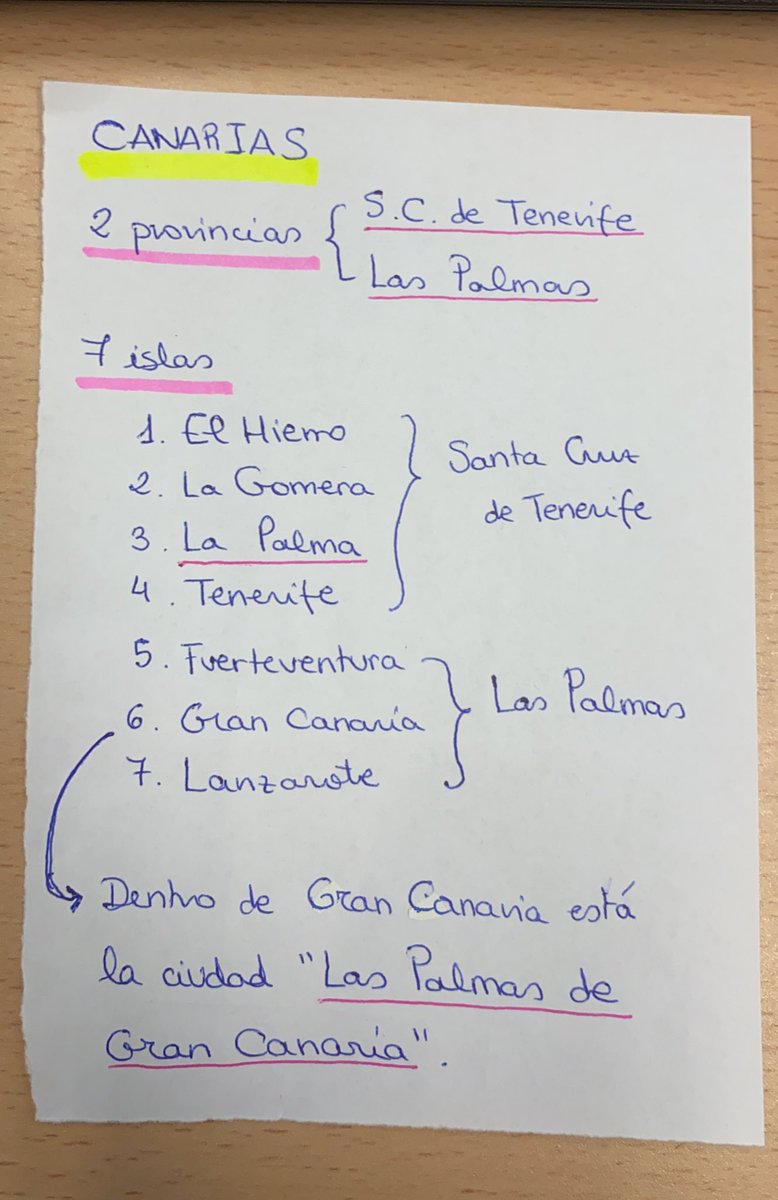 CANARIAS
2 provincias { S.C. de Tenerife
Las Palmas
7 islas
1. El Hierro
2. La Gomera
3. La Palma
4. Tenerife
} Santa Cruz
de Tenerife
5. Fuerteventura
6. Gran Canaria
7. Lanzarote
} Las Palmas
Dentro de Gran Canaria está
la ciudad "Las Palmas de
Gran Canaria".